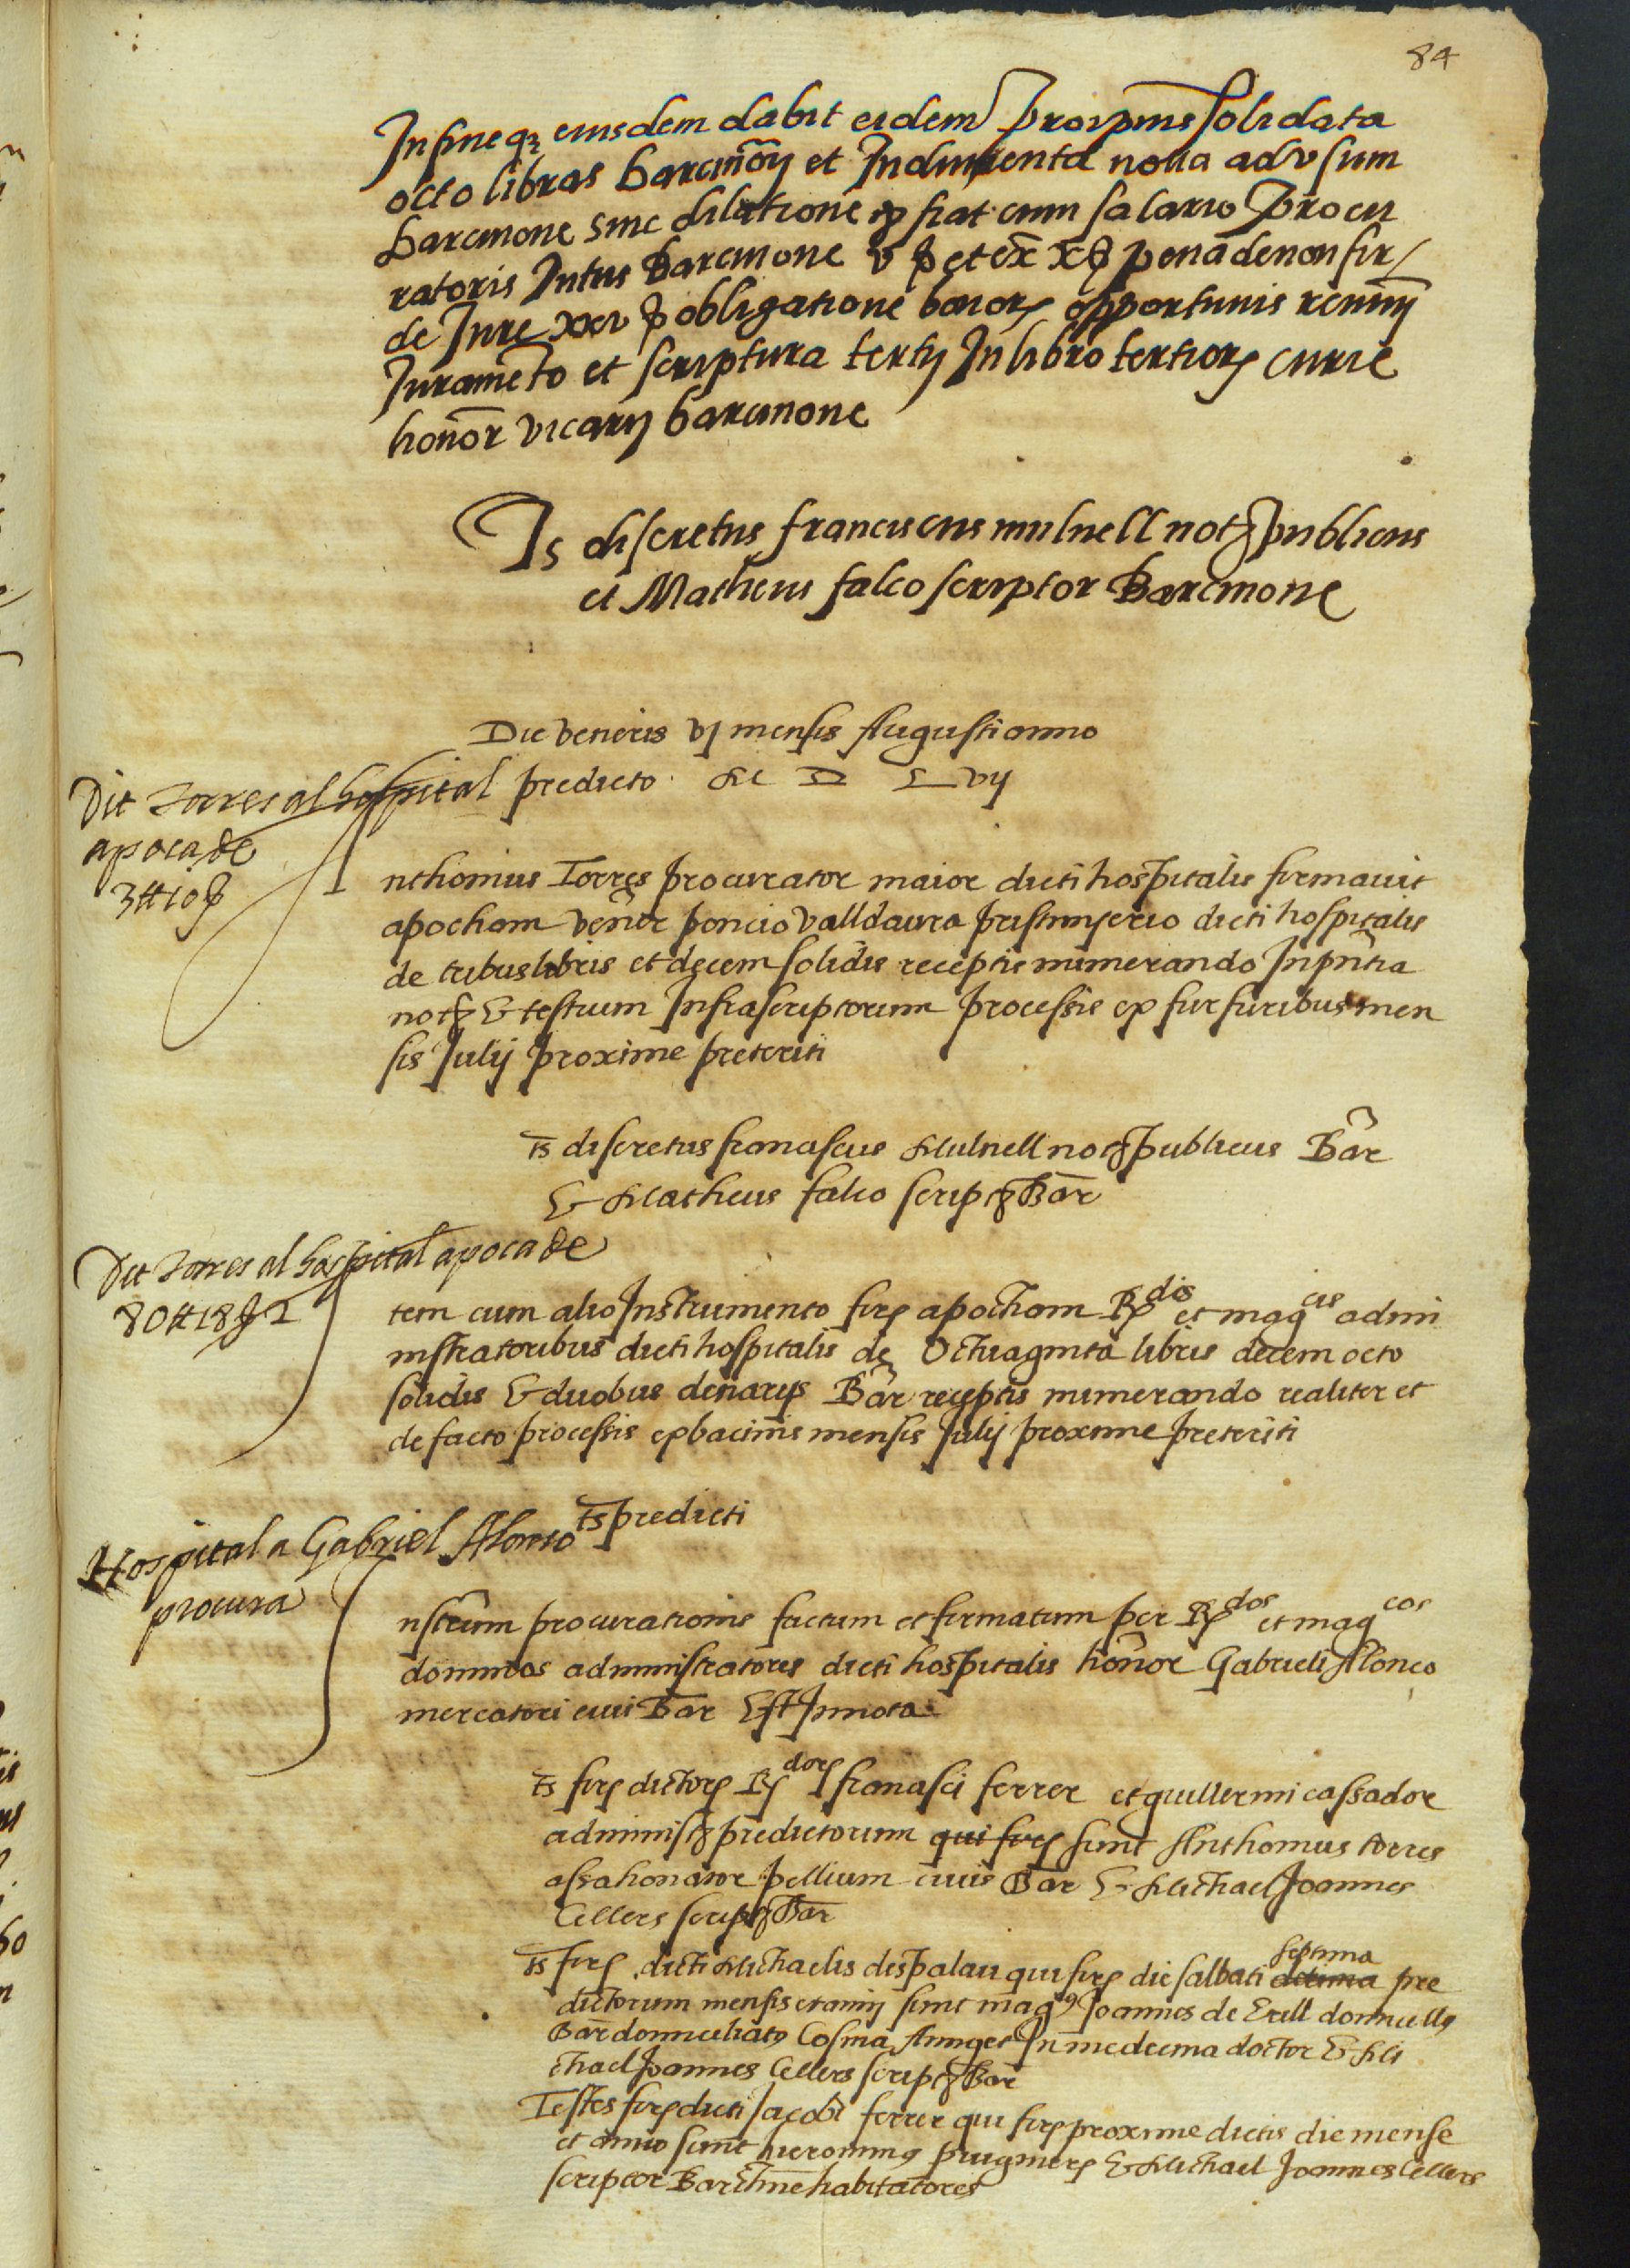 84
In fine q3 eiusdem dabit eidem pro ipsius solidata
octo libras barcinoñ et Indumenta noua ad vsum
barcinone sine dilatione &c fiat cum salario procu
ratoris Intus Barcinone v ß et ex xß pena de non fir/
de Jure xxv ß obligatione bonorꝫ opportunis
Juramẽto et scriptura tertij In libro tertiorꝫ curie
honor vicarij barcinone
Ts discretus franciscus mulnell not publicus
et Matheus falco scriptor Barcinone
Die veneris vj mensis Augusti anno
predicto M D L vij
Dit Torres al hospital
apoca de
3 ₶ 10 ß
nthonius Torres procurator maior dicti hospitalis firmauit
apocham veñor poncio Valldaura dicti hospitalis
de tribus libris et decem solidis receptis numerando In pñtia
not & testium Infrascriptorum processis ex furfuribus men
sis Julij proxime preteriti
Ts discretus franciscus Mulnell not publicus Bar
& Matheus falco script Bar
Dit Torres al hospital apoca de
80 ₶ 18 ß 2
tem cum alio Instrumento firꝫ apocham Rdis et magcis admi
nistratoribus dicti hospitalis de Octuaginta libris decem octo
solidis & duobus denarijs Bar receptis numerando realiter et
de facto processis ex bacinis mensis Julij proxime preteriti
Ts predicti
Hospital a Gabriel Alonso
procura
nstrum procurationis factum et firmatum per Rdos et magcos
dominos administratores dicti hospitalis honor Gabrieli Alonso
mercatori ciui Bar Est In nota
Ts firꝫ dictorꝫ Rdorꝫ francisci ferrer et guillermi cassador
administ predictorum qui firꝫ sunt Anthonius torres
assahonator pellium ciuis Bar & Michael Joannes
Cellers script Bar
Ts firꝫ dicti Michaelis despalau qui firꝫ die sabbati decima septima pre
dictorum mensis et anni sunt magꝯ Joannes de Erill domicellꝯ
Bar domiciliatꝯ Cosma In medicina doctor & Mi
chael Joannes Cellers script Bar
Testes firꝫ dicti Jacobi ferrer qui firꝫ proxime dictis die mense
et anno sunt hieronimꝯ & Michael Joannes Cellers
scriptor Barchine habitatores